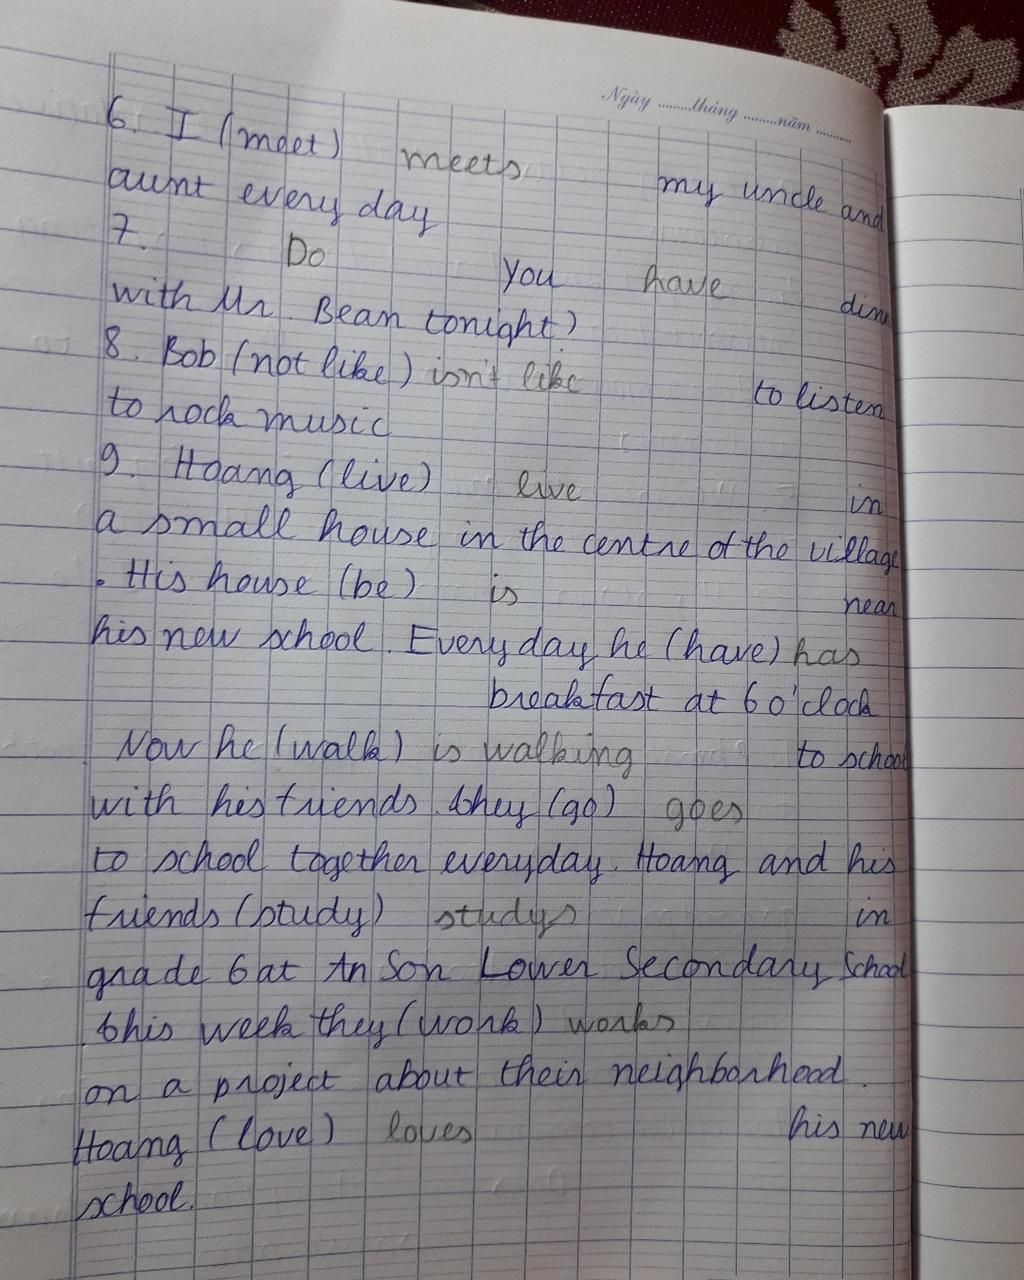 Ngày ........tháng ........năm ..........
6. I (meet) meets my uncle and
aunt every day
7. Do you have
with Mr. Bean tonight?
8. Bob (not like) isn't like to listen
to rock music
9. Hoang (live) live in
a small house in the centre of the village
. His house (be) is near
his new school. Every day he (have) has
breakfast at 6 o'clock
Now he (walk) is walking to school
with his friends. they (go) goes
to school together everyday. Hoang and his
friends (study) studys in
grade 6 at An Son Lower Secondary School
. this week they (work) works
on a project about their neighborhood.
Hoang (love) loves his new
school.